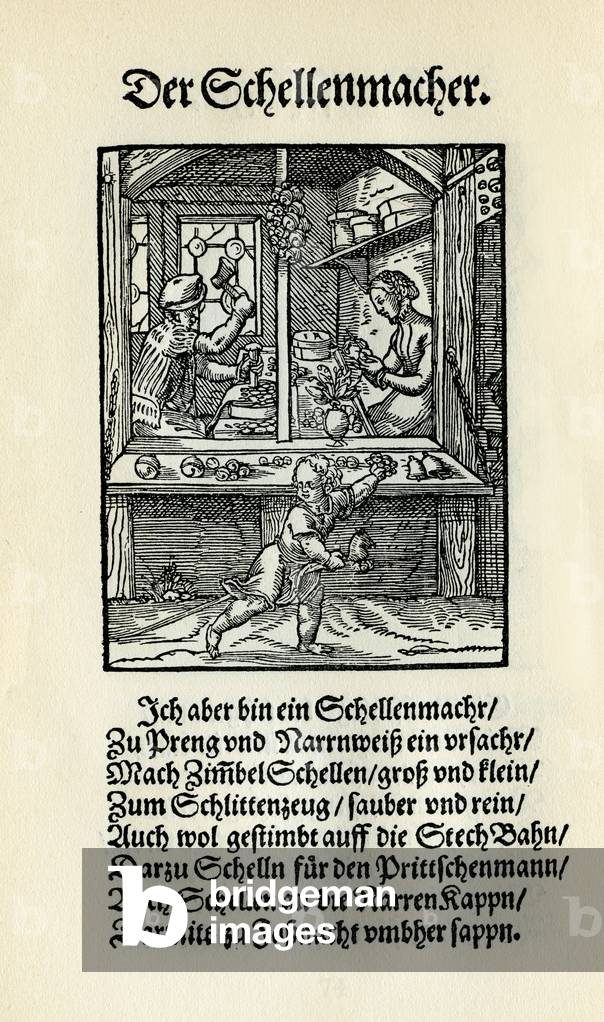 Der Schellenmacher.
Ich aber bin ein Schellenmachr/
Zu Preng vnd Narrnweiß ein vrsachr/
Mach Zim̃bel Schellen/groß vnd klein/
Zum Schlittenzeug/ sauber vnd rein/
Auch wol gestimbt auff die StechBahn/
Darzu Schelln für den Prittschenmann/
Schelln die NarrenKappn/
vmbher sappn.
bridgeman
images
74